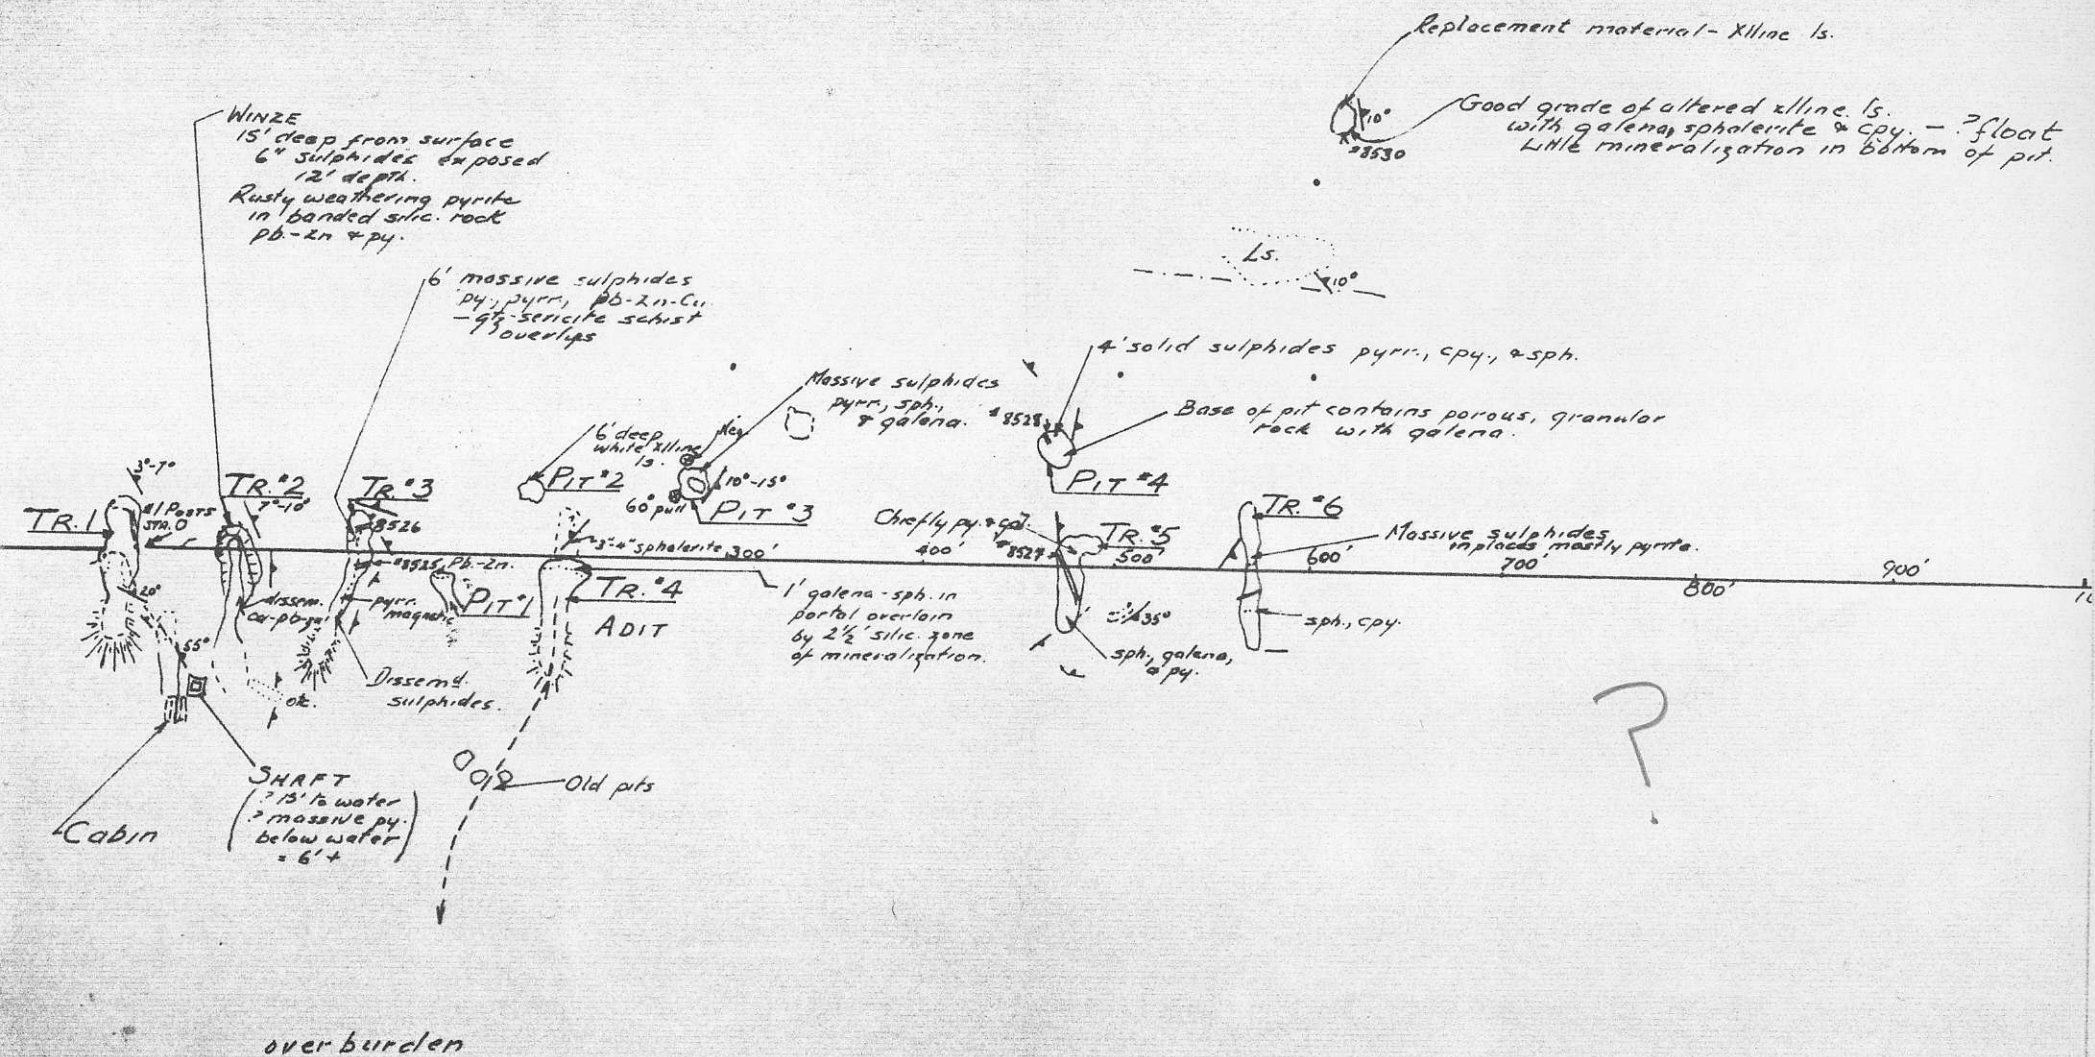 Replacement material - Xlline ls.
10°
#8530
Good grade of altered xlline. ls.
with galena, sphalerite & cpy. - ? float
Little mineralization in bottom of pit.
WINZE
15' deep from surface
6" sulphides exposed
12' depth.
Rusty weathering pyrite
in banded silic. rock
pb.-zn & py.
6' massive sulphides
py., pyrr., pb-zn-Cu
- qtz-sericite schist
overlys
Ls.
10°
4' solid sulphides pyrr., cpy., & sph.
Massive sulphides
pyrr., sph.,
& galena.
#8528
Base of pit contains porous, granular
rock with galena.
6' deep
white xlline
ls.
Neg
PIT #2
10°-15°
60° pull
PIT #3
PIT #4
3°-7°
TR. 1
#1 POSTS
STA. 0
TR. #2
7°-10°
TR. #3
8526
#8525 Pb.-Zn.
3"-4" sphalerite
300'
Chiefly py. & gal.
400'
#8527
TR. #5
500'
TR. #6
Massive sulphides
in places mostly pyrite.
600'
700'
800'
900'
20°
dissem.
pyrr.
magnetic
PIT #1
TR. #4
ADIT
1' galena-sph. in
portal overlain
by 2½' silic. zone
of mineralization.
35°
sph., cpy.
sph., galena,
& py.
55°
otc.
Dissem'd.
sulphides.
SHAFT
(? 15' to water
? massive py.
below water
= 6'+)
Cabin
Old pits
?
overburden